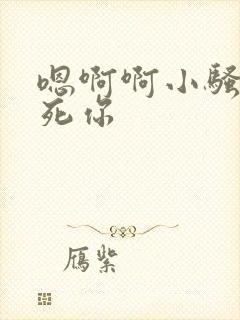 嗯啊啊小骚
死你
雁紫